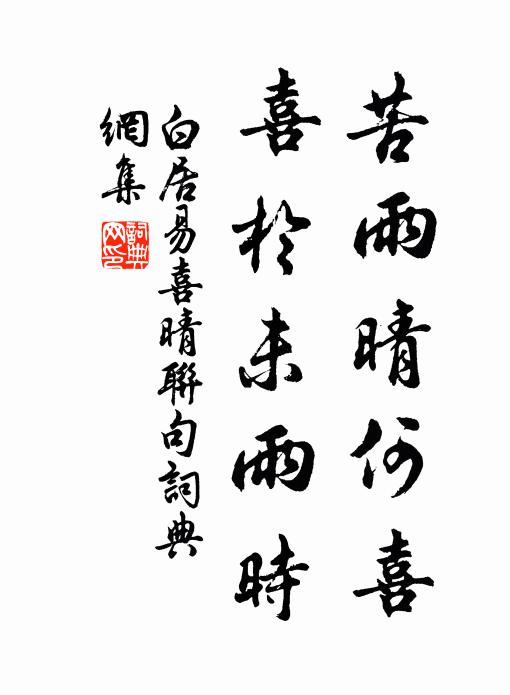 苦雨晴何喜
喜於未雨時
白居易喜晴聯句詞典
網集
詞典
网印